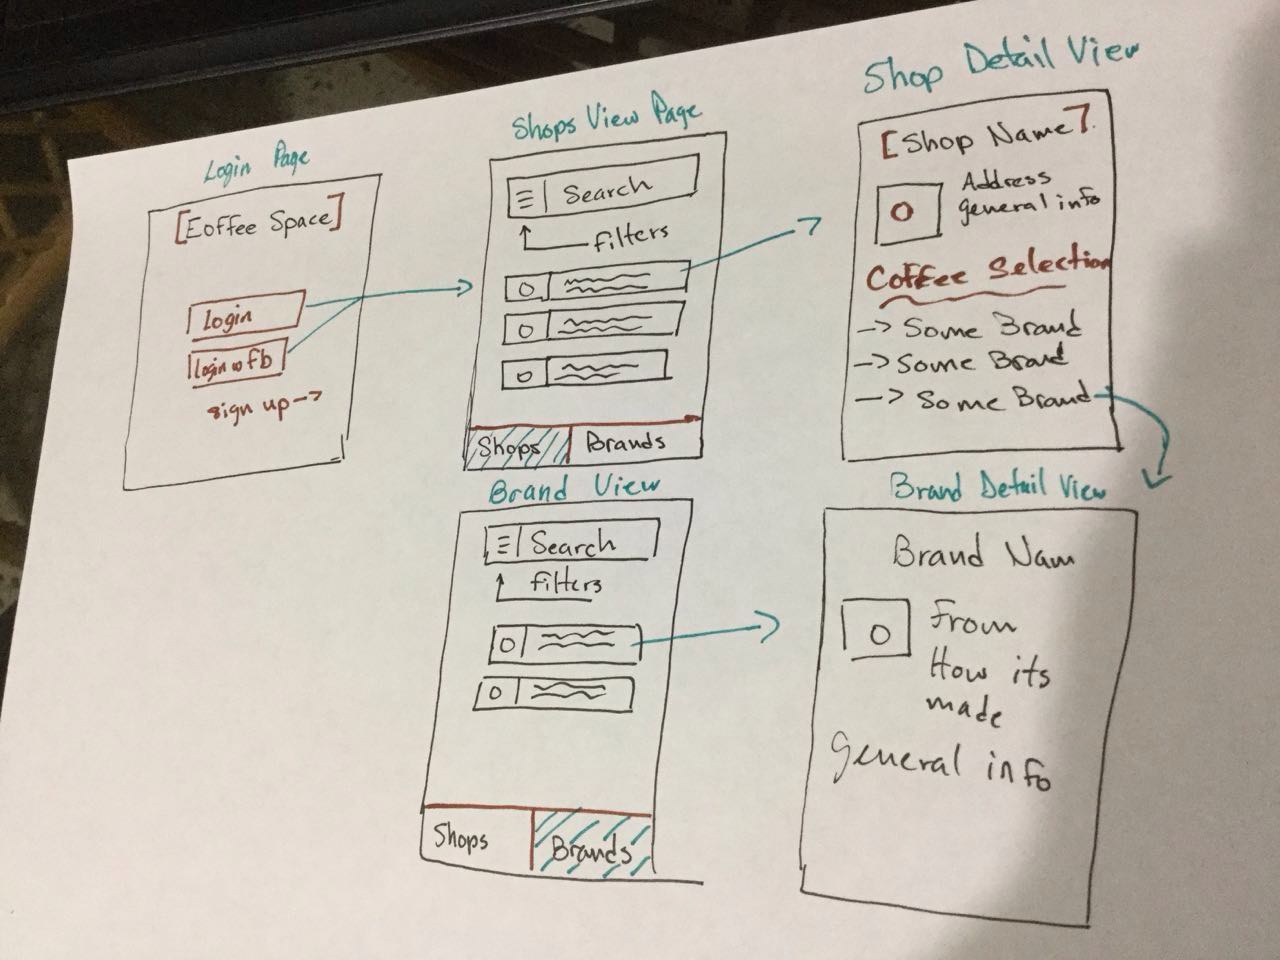 Login Page
[Eoffee Space]
login
login w fb
sign up -->
Shops View Page
Search
filters
Shops
Brands
Shop Detail View
[Shop Name]
Address
general info
Coffee Selection
--> Some Brand
--> Some Brand
--> Some Brand
Brand View
Search
filters
Shops
Brands
Brand Detail View
Brand Nam
From
How its
made
general info